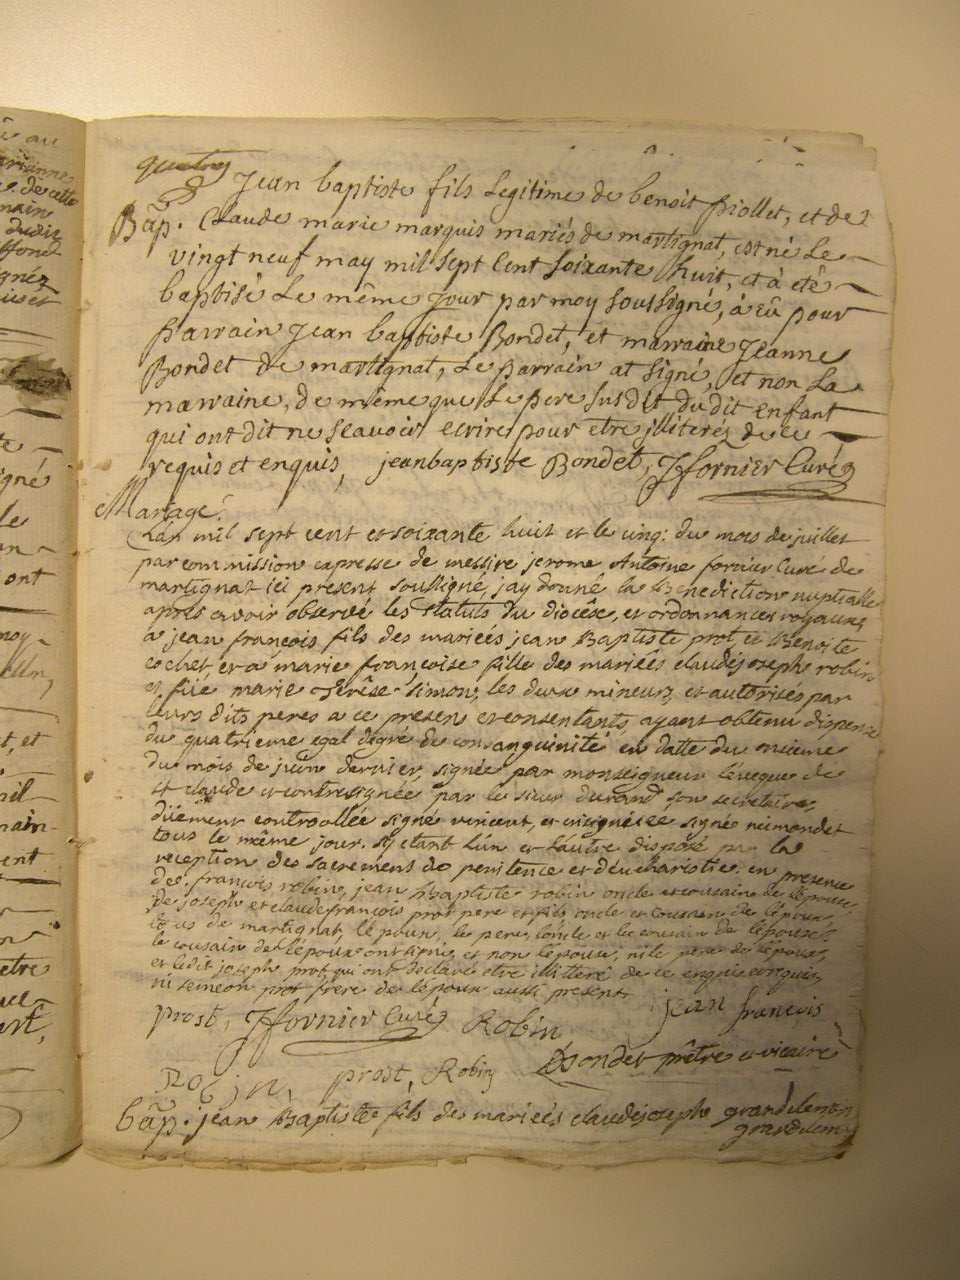 quatre
Jean baptiste fils Legitime de benoit piollet, et de
Bap. Claude marie marquis mariés de martignat, est né Le
vingt neuf may mil sept Cent soixante huit, et à été
baptisé Le même Jour par moy soussigné, à eû pour
parrain Jean baptiste Bondet, et marraine Jeanne
Bondet de martignat, Le parrain at signé, et non La
marraine, de même que Le pere susdit dudit enfant
qui ont dit ne sçavoir ecrire pour etre illiterés de ce
requis et enquis, jeanbaptiste Bondet, JJfornier Curé
Mariage.
Lan mil sept cent et soixante huit et le cinq: du mois de juillet
par commission expresse de messire jerome Antoine fornier Curé de
martignat ici present soussigné, j'ay donné la Benediction nuptialle
après avoir observé les statuts du diocèse, et ordonnances royaux,
à jean françois fils des mariés jean Baptiste prot et Benoite
cochet, et à marie françoise fille des mariés claudejoseph robin
et marie Terêse simon, les deux mineurs, et autorisés par
leurs dits peres a ce presens et consentants, ayant obtenu dispense
du quatrieme egal degré de consanguinité en datte du onzieme
du mois de juin dernier, signée par monseigneur lévêque de
st claude et contresignée par le sieur durand son secretaire,
düement controllée signé vincent, et insignuée signé nemondet
tous le même jour, s'etant l'un et l'autre disposé par la
reception des sacrement de penitence et d'eucharistie: en presence
de: françois robin, jean Baptiste robin oncle et cousain de l'épouse,
de joseph et claudefrançois prot pere et fils oncle et cousain de l'époux,
tous de martignat, l'époux, le pere, l'oncle et le cousain de l'épouse,
le cousain de l'époux ont signé, et non l'épouse, ni le pere de l'époux,
et ledit joseph prot qui ont declaré etre illiteré de ce enquis et requis,
ni simeon prot frere de l'époux aussi present.
prost, JJfornier Curé Robin jean francois
Robin, prost, Robin Bondet prêtre et vicaire
bap. jean Baptiste fils des mariés claudejosephe grandclement